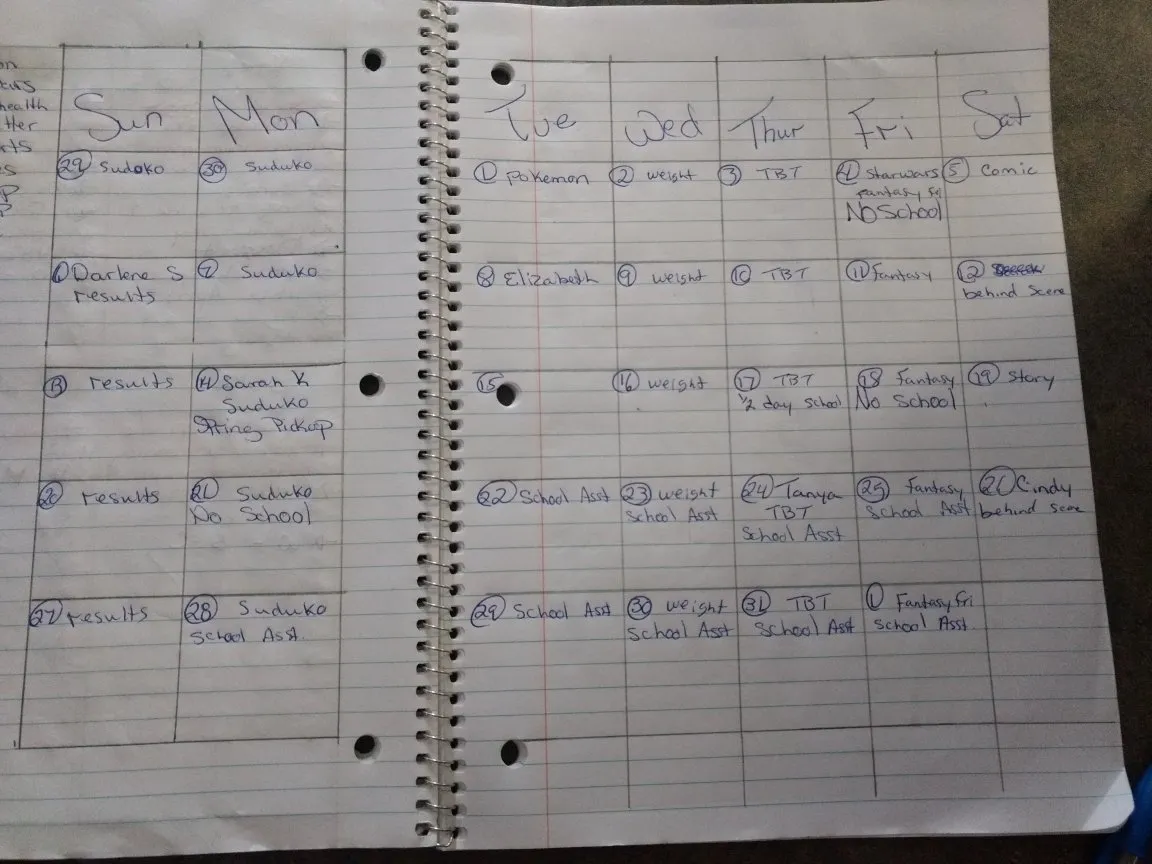 health
Sun Mon Tue Wed Thur Fri Sat
29 Sudoko
30 Suduko
1 Pokemon
2 weight
3 TBT
4 Starwars
Fantasy fri
No School
5 Comic
6 Darlene S
results
7 Suduko
8 Elizabeth
9 weight
10 TBT
11 Fantasy
12
behind Scene
13 results
14 Sarah K
Suduko
Spring Pickup
15
16 weight
17 TBT
1/2 day School
18 Fantasy
No School
19 Story
20 results
21 Suduko
No School
22 School Asst
23 weight
School Asst
24 Tanya
TBT
School Asst
25 Fantasy
School Asst
26 Cindy
behind Scene
27 results
28 Suduko
School Asst.
29 School Asst
30 weight
School Asst
31 TBT
School Asst
1 Fantasy fri
School Asst